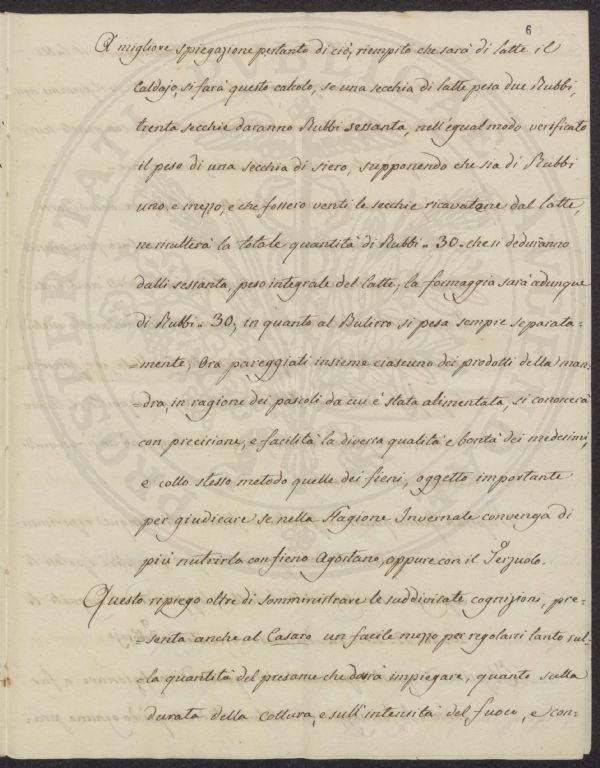 6
A migliore spiegazione pertanto di ciò, riempito che sarà di latte il
Caldajo, si farà questo calcolo, se una secchia di latte pesa due Rubbi,
trenta secchie daranno Rubbi sessanta, nell'egual modo verificato
il peso di una secchia di siero, supponendo che sia di Rubbi
uno, e mezzo, e che fossero venti le secchie ricavatene dal latte,
ne risulterà la totale quantità di Rubbi „ 30 „ che si deduranno
dalli sessanta, peso integrale del latte; la formaggia sarà adunque
di Rubbi „ 30; in quanto al Butirro si pesa sempre separata=
=mente; Ora pareggiati insieme ciascuno dei prodotti della man=
=dra, in ragione dei pascoli da cui è stata alimentata, si conoscerà
con precisione, e facilità la diversa qualità e bontà dei medesimi,
e collo stesso metodo quelle dei fieni, oggetto importante
per giudicare se nella Stagione Invernale convenga di
più nutrirla con fieno Agostano, oppure con il Terzuolo.
Questo ripiego oltre di somministrare le suddivisate cognizioni, pre=
=senta anche al Casaro un facile mezzo per regolarsi tanto sul=
=la quantità del presame che dovrà impiegare, quanto sulla
durata della cottura, e sull'intensità del fuoco, e con=
PROSPERITATI